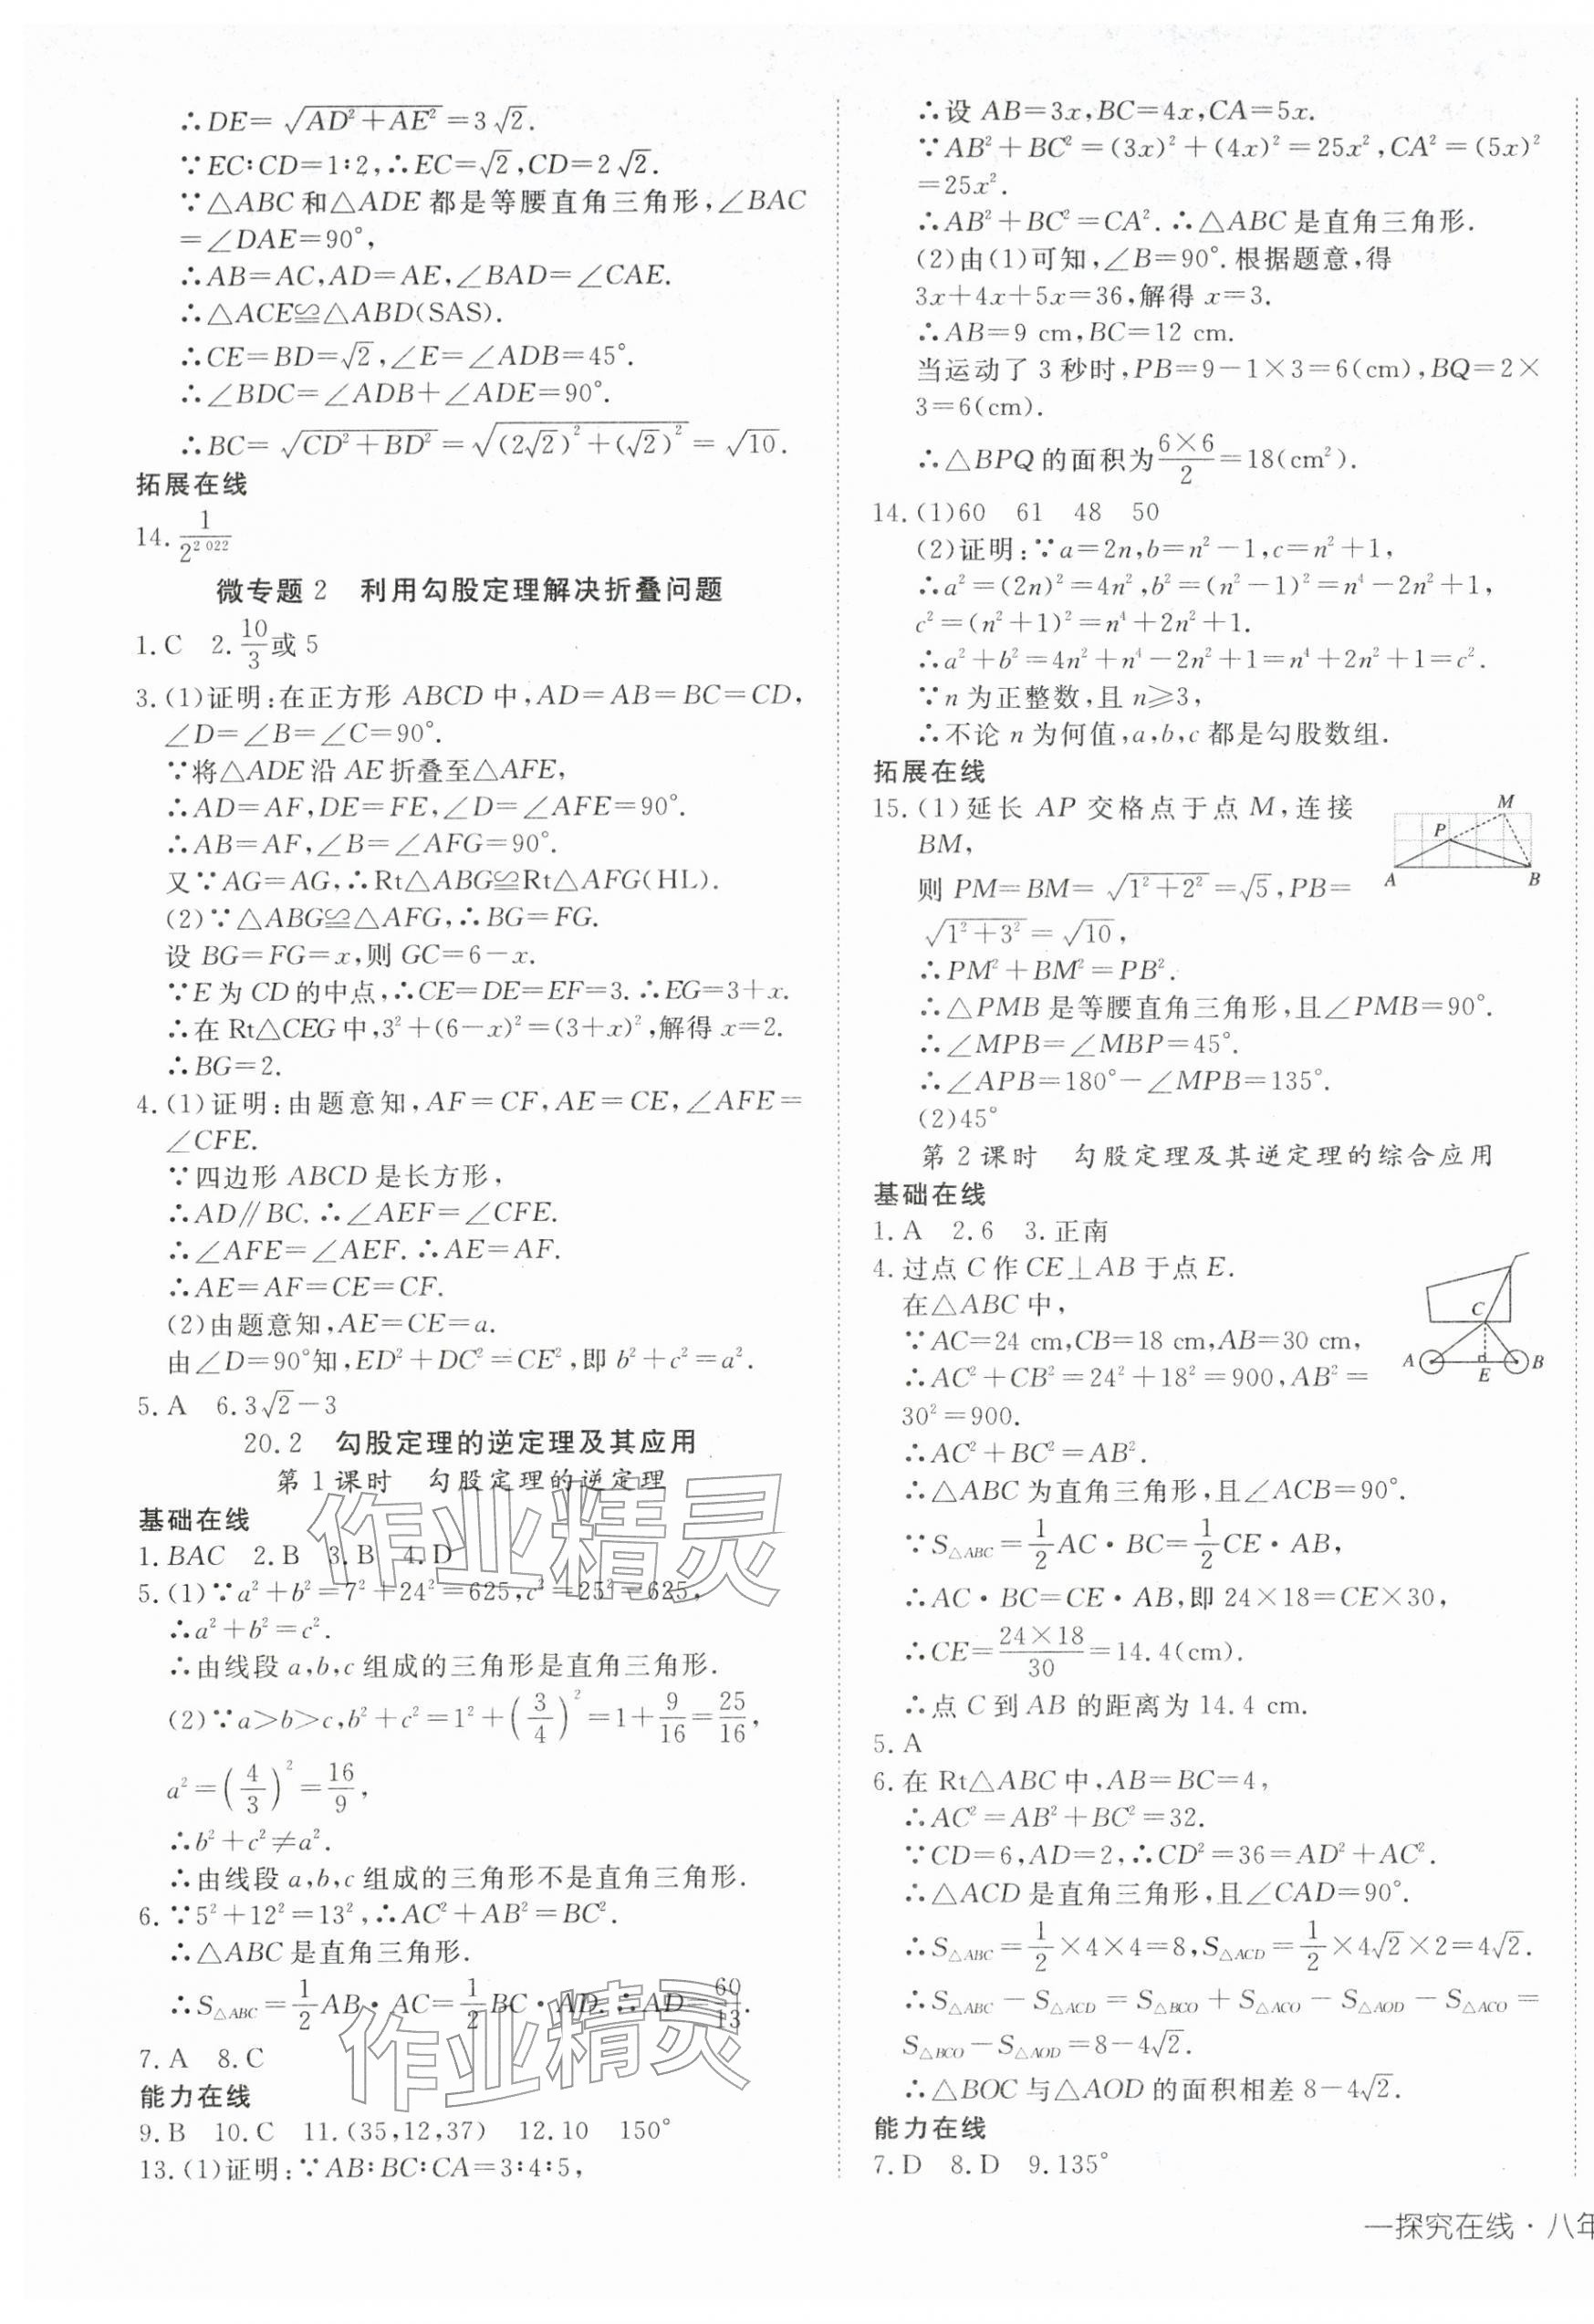 ∴DE=√(AD²+AE²)=3√2.
∵EC∶CD=1∶2,∴EC=√2,CD=2√2.
∵△ABC和△ADE都是等腰直角三角形,∠BAC
=∠DAE=90°,
∴AB=AC,AD=AE,∠BAD=∠CAE.
∴△ACE≌△ABD(SAS).
∴CE=BD=√2,∠E=∠ADB=45°.
∴∠BDC=∠ADB+∠ADE=90°.
∴BC=√(CD²+BD²)=√((2√2)²+(√2)²)=√10.
拓展在线
14. 1/2^(2 022)
微专题2 利用勾股定理解决折叠问题
1.C 2. 10/3 或5
3.(1)证明:在正方形ABCD中,AD=AB=BC=CD,
∠D=∠B=∠C=90°.
∵将△ADE沿AE折叠至△AFE,
∴AD=AF,DE=FE,∠D=∠AFE=90°.
∴AB=AF,∠B=∠AFG=90°.
又∵AG=AG,∴Rt△ABG≌Rt△AFG(HL).
(2)∵△ABG≌△AFG,∴BG=FG.
设BG=FG=x,则GC=6-x.
∵E为CD的中点,∴CE=DE=EF=3.∴EG=3+x.
∴在Rt△CEG中,3²+(6-x)²=(3+x)²,解得x=2.
∴BG=2.
4.(1)证明:由题意知,AF=CF,AE=CE,∠AFE=
∠CFE.
∵四边形ABCD是长方形,
∴AD∥BC.∴∠AEF=∠CFE.
∴∠AFE=∠AEF.∴AE=AF.
∴AE=AF=CE=CF.
(2)由题意知,AE=CE=a.
由∠D=90°知,ED²+DC²=CE²,即b²+c²=a².
5.A 6.3√2-3
20.2 勾股定理的逆定理及其应用
第1课时 勾股定理的逆定理
基础在线
1.BAC 2.B 3.B 4.D
5.(1)∵a²+b²=7²+24²=625,c²=25²=625,
∴a²+b²=c².
∴由线段a,b,c组成的三角形是直角三角形.
(2)∵a>b>c,b²+c²=1²+(3/4)²=1+9/16=25/16,
a²=(4/3)²=16/9,
∴b²+c²≠a².
∴由线段a,b,c组成的三角形不是直角三角形.
6.∵5²+12²=13²,∴AC²+AB²=BC².
∴△ABC是直角三角形.
∴S△ABC=1/2AB·AC=1/2BC·AD.∴AD=60/13.
7.A 8.C
能力在线
9.B 10.C 11.(35,12,37) 12.10 150°
13.(1)证明:∵AB∶BC∶CA=3∶4∶5,
∴设AB=3x,BC=4x,CA=5x.
∵AB²+BC²=(3x)²+(4x)²=25x²,CA²=(5x)²
=25x².
∴AB²+BC²=CA².∴△ABC是直角三角形.
(2)由(1)可知,∠B=90°.根据题意,得
3x+4x+5x=36,解得x=3.
∴AB=9 cm,BC=12 cm.
当运动了3秒时,PB=9-1×3=6(cm),BQ=2×
3=6(cm).
∴△BPQ的面积为6×6/2=18(cm²).
14.(1)60 61 48 50
(2)证明:∵a=2n,b=n²-1,c=n²+1,
∴a²=(2n)²=4n²,b²=(n²-1)²=n⁴-2n²+1,
c²=(n²+1)²=n⁴+2n²+1.
∴a²+b²=4n²+n⁴-2n²+1=n⁴+2n²+1=c².
∵n为正整数,且n≥3,
∴不论n为何值,a,b,c都是勾股数组.
拓展在线
15.(1)延长AP交格点于点M,连接
BM,
则PM=BM=√(1²+2²)=√5,PB=
√(1²+3²)=√10,
∴PM²+BM²=PB².
∴△PMB是等腰直角三角形,且∠PMB=90°.
∴∠MPB=∠MBP=45°.
∴∠APB=180°-∠MPB=135°.
(2)45°
M
P
A B
第2课时 勾股定理及其逆定理的综合应用
基础在线
1.A 2.6 3.正南
4.过点C作CE⊥AB于点E.
在△ABC中,
∵AC=24 cm,CB=18 cm,AB=30 cm,
∴AC²+CB²=24²+18²=900,AB²=
30²=900.
∴AC²+BC²=AB².
∴△ABC为直角三角形,且∠ACB=90°.
∵S△ABC=1/2AC·BC=1/2CE·AB,
∴AC·BC=CE·AB,即24×18=CE×30,
∴CE=24×18/30=14.4(cm).
∴点C到AB的距离为14.4 cm.
C
A E B
5.A
6.在Rt△ABC中,AB=BC=4,
∴AC²=AB²+BC²=32.
∵CD=6,AD=2,∴CD²=36=AD²+AC².
∴△ACD是直角三角形,且∠CAD=90°.
∴S△ABC=1/2×4×4=8,S△ACD=1/2×4√2×2=4√2.
∴S△ABC-S△ACD=S△BCO+S△ACO-S△AOD-S△ACO=
S△BCO-S△AOD=8-4√2.
∴△BOC与△AOD的面积相差8-4√2.
能力在线
7.D 8.D 9.135°
—探究在线·八年
作业精灵
作业精灵